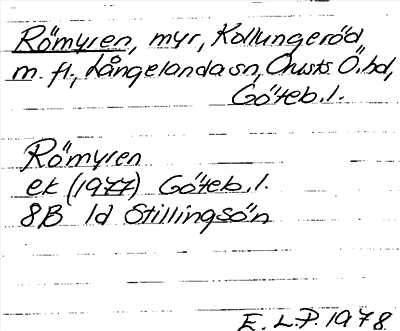 Römyren, myr, Kollungeröd
m. fl., Långelanda sn, Orusts Ö. hd,
Göteb. l.
Römyren
ek (1977) Göteb. l.
8B 1d Stillingsön
E. L. P. 1978